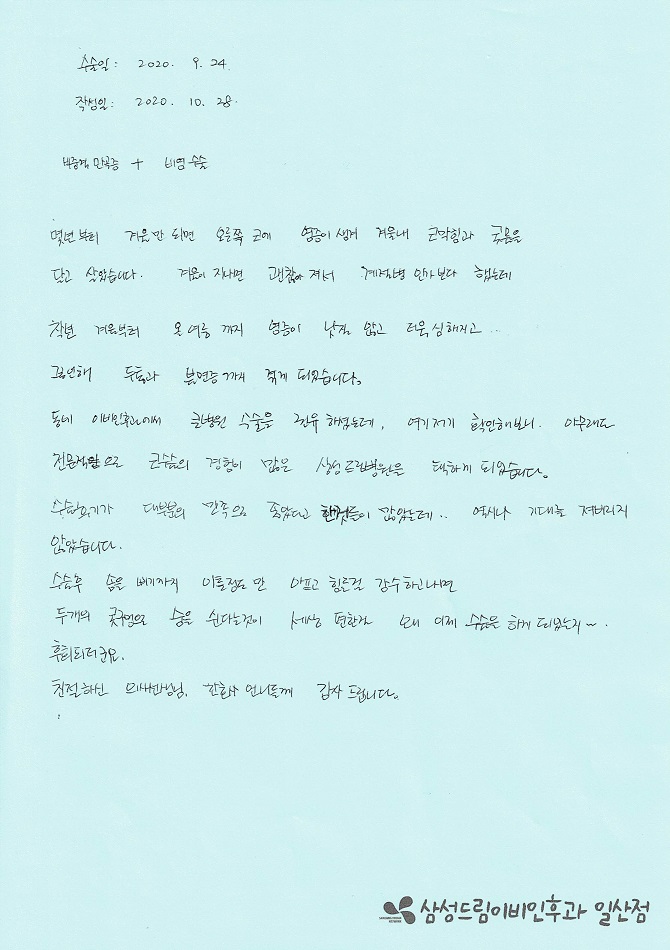 수술일: 2020. 9. 24.
작성일: 2020. 10. 28.
비중격 만곡증 + 비염 수술
몇년부터 겨울만 되면 오른쪽 코에 염증이 생겨 겨울내 코막힘과 콧물을
달고 살았습니다. 겨울이 지나면 괜찮아 져서 계절병 인가보다 했는데
작년 겨울부터 올 여름 까지 염증이 낫질 않고 더욱 심해지고..
급기야 두통과 불면증까지 겪게 되었습니다.
동네 이비인후과에서 큰병원 수술을 권유 하셨는데, 여기저기 확인해보니. 아무래도
전문적으로 코수술의 경험이 많은 삼성드림병원을 택하게 되었습니다.
수술후기가 대부분의 만족으로 좋았다고 한것들이 많았는데.. 역시나 기대를 져버리지
않았습니다.
수술후 솜을 빼기까지 이틀정도만 아프고 힘든걸 감수하고나면
두개의 콧구멍으로 숨을 쉰다는것이 세상 편한걸 왜 이제 수술을 하게 되었는지~.
후회되더군요.
친절하신 의사선생님, 간호사 언니들께 감사 드립니다.
삼성드림이비인후과 일산점